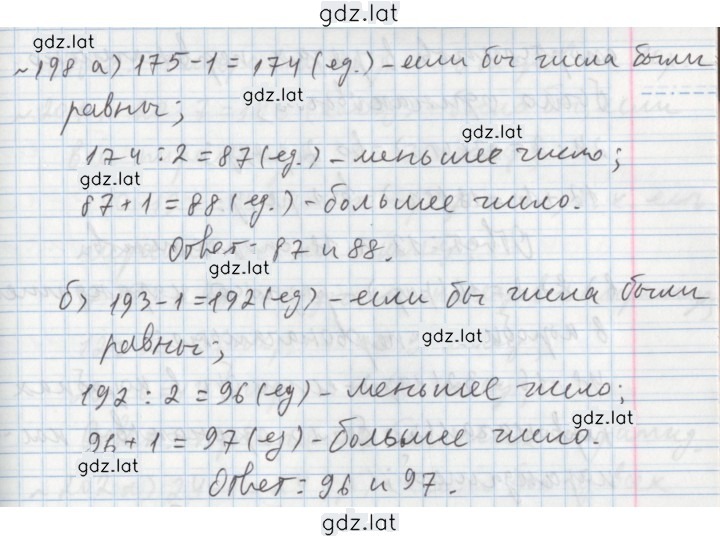 gdz.lat
gdz.lat
№198 а) 175-1 = 174 (ед.) - если бы числа были
gdz.lat
равны;
gdz.lat
174 : 2 = 87 (ед.) - меньшее число;
gdz.lat
87 + 1 = 88 (ед.) - большее число.
Ответ: 87 и 88.
gdz.lat
б) 193-1 = 192 (ед) - если бы числа были
gdz.lat
равны;
192 : 2 = 96 (ед) - меньшее число;
gdz.lat
96 + 1 = 97 (ед) - большее число.
gdz.lat
Ответ: 96 и 97.
gdz.lat